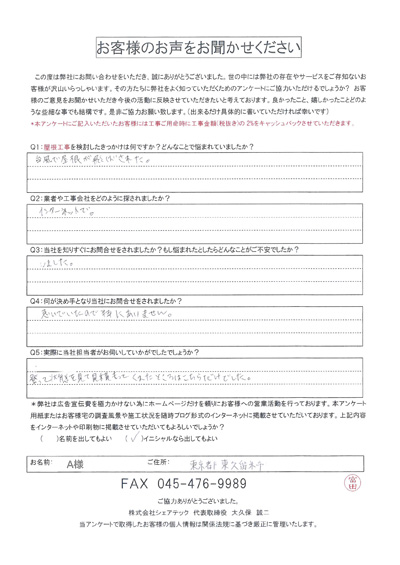 お客様のお声をお聞かせください
この度は弊社にお問い合わせをいただき、誠にありがとうございました。世の中には弊社の存在やサービスをご存知ないお
客様が沢山いらっしゃいます。その方たちに弊社をよく知っていただくためのアンケートにご協力いただけるでしょうか？ お客
様のご意見をお聞かせいただき今後の活動に反映させていただきたいと考えております。良かったこと、嬉しかったことどのよ
うな些細な事でも結構です。是非ご協力お願い致します。（出来るだけ具体的に書いていただければ幸いです）
*本アンケートにご記入いただいたお客様には工事ご用命時に工事金額(税抜き)の2%をキャッシュバックさせていただきます。
Q1:屋根工事を検討したきっかけは何ですか？どんなことで悩まれていましたか？
台風で屋根が飛ばされた。
Q2:業者や工事会社をどのように探されましたか？
インターネットで。
Q3:当社を知りすぐにお問合せをされましたか？もし悩まれたとしたらどんなことがご不安でしたか？
しました。
Q4:何が決め手となり当社にお問合せをされましたか？
急いでいたので特にありません。
Q5:実際に当社担当者がお伺いしていかがでしたでしょうか？
見て見積もって くれたところはこちらだけでした。
＊弊社は広告宣伝費を極力かけない為にホームページだけを頼りにお客様への営業活動を行っております。本アンケート
用紙またはお客様宅の調査風景や施工状況を随時ブログ形式のインターネットに掲載させていただいております。上記内容
をインターネットや印刷物に掲載させていただいてもよろしいでしょうか？
( )名前を出してもよい (✓)イニシャルなら出してもよい
お名前: A様 ご住所: 東京都東久留米市
FAX 045-476-9989
ご協力ありがとうございました。
株式会社シェアテック 代表取締役 大久保 誠二
当アンケートで取得したお客様の個人情報は関係法規に基づき厳正に管理いたします。